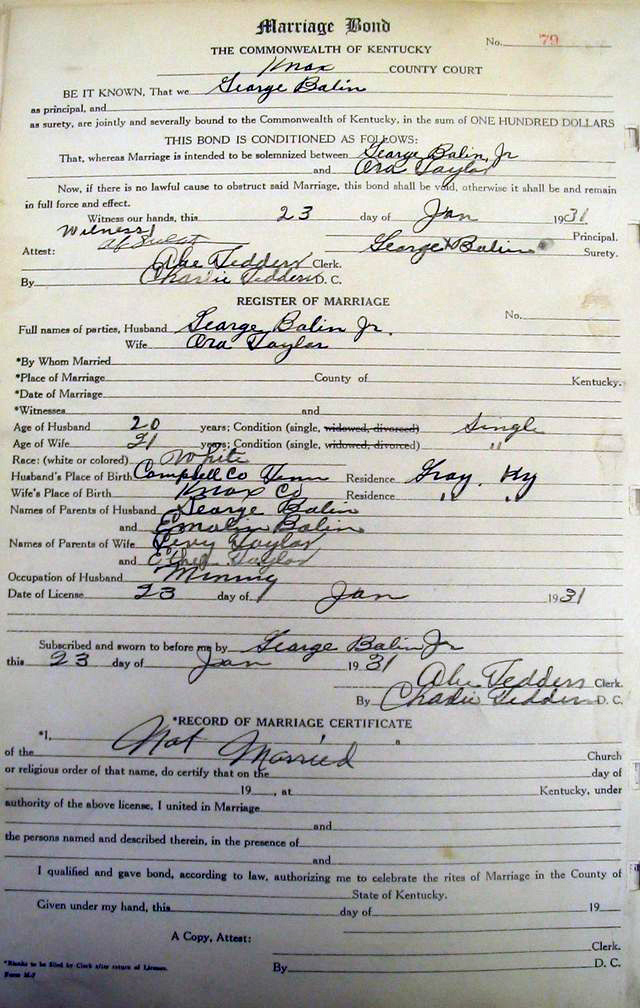 Marriage Bond
No. 79
THE COMMONWEALTH OF KENTUCKY
Knox COUNTY COURT
BE IT KNOWN, That we George Balin
as principal, and
as surety, are jointly and severally bound to the Commonwealth of Kentucky, in the sum of ONE HUNDRED DOLLARS
THIS BOND IS CONDITIONED AS FOLLOWS:
That, whereas Marriage is intended to be solemnized between George Balin, Jr
and Ora Taylor
Now, if there is no lawful cause to obstruct said Marriage, this bond shall be void, otherwise it shall be and remain
in full force and effect.
Witness our hands, this 23 day of Jan 1931
Witness
Principal.
Attest: George Balin Surety.
Abe Tedders Clerk.
By Charlie Tedders D. C.
REGISTER OF MARRIAGE
No.
Full names of parties, Husband George Balin Jr.
Wife Ora Taylor
*By Whom Married
*Place of Marriage County of Kentucky.
*Date of Marriage
*Witnesses and
Age of Husband 20 years; Condition (single, widowed, divorced) Single
Age of Wife 21 years; Condition (single, widowed, divorced) "
Race: (white or colored) White
Husband's Place of Birth Campbell Co Tenn Residence Gray, Ky
Wife's Place of Birth Knox Co Residence " "
Names of Parents of Husband George Balin
and Emalin Balin
Names of Parents of Wife Levy Taylor
and Ethel Taylor
Occupation of Husband Mining
Date of License 23 day of Jan 1931
Subscribed and sworn to before me by George Balin Jr
this 23 day of Jan 1931
Abe Tedders Clerk.
By Charlie Tedders D. C.
*RECORD OF MARRIAGE CERTIFICATE
*I,
Not Married
of the Church
or religious order of that name, do certify that on the day of
19 , at Kentucky, under
authority of the above license, I united in Marriage
and
the persons named and described therein, in the presence of
and
I qualified and gave bond, according to law, authorizing me to celebrate the rites of Marriage in the County of
State of Kentucky.
Given under my hand, this day of 19
A Copy, Attest: Clerk.
By D. C.
*Blanks to be filled by Clerk after return of License.